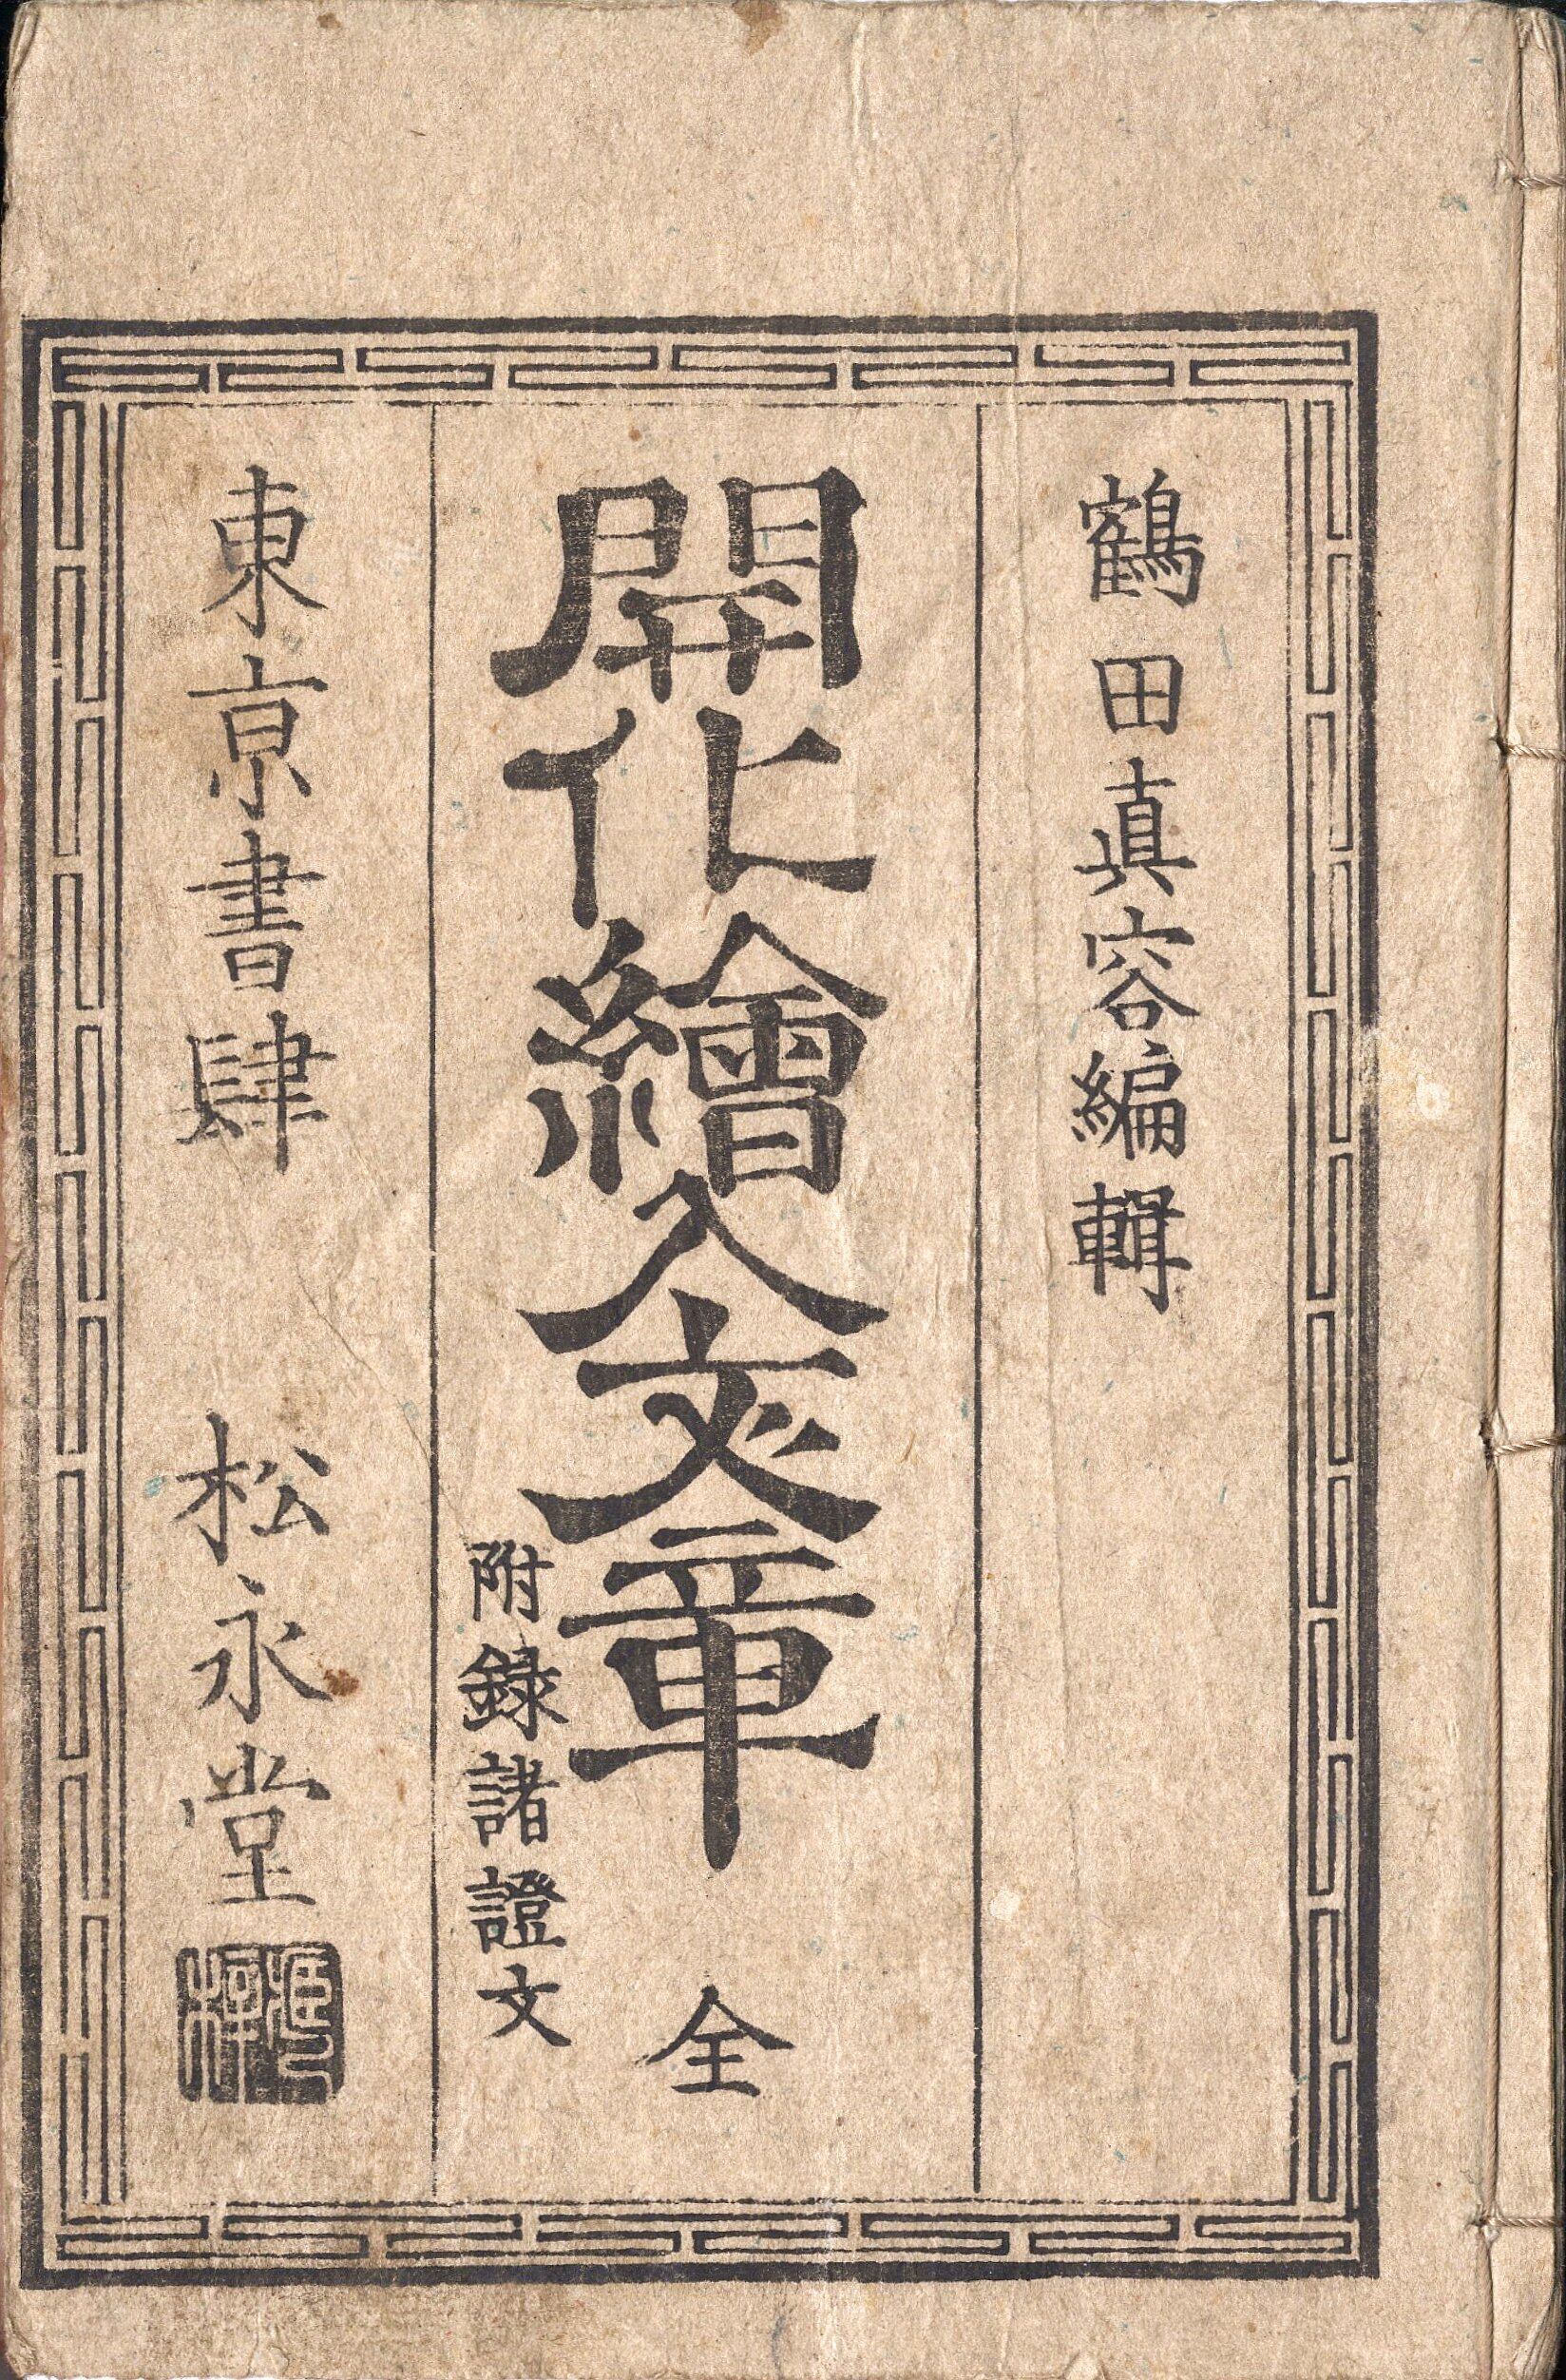 鶴田真容編輯
開化繪入文章 全
附録諸證文
東京書肆 松永堂